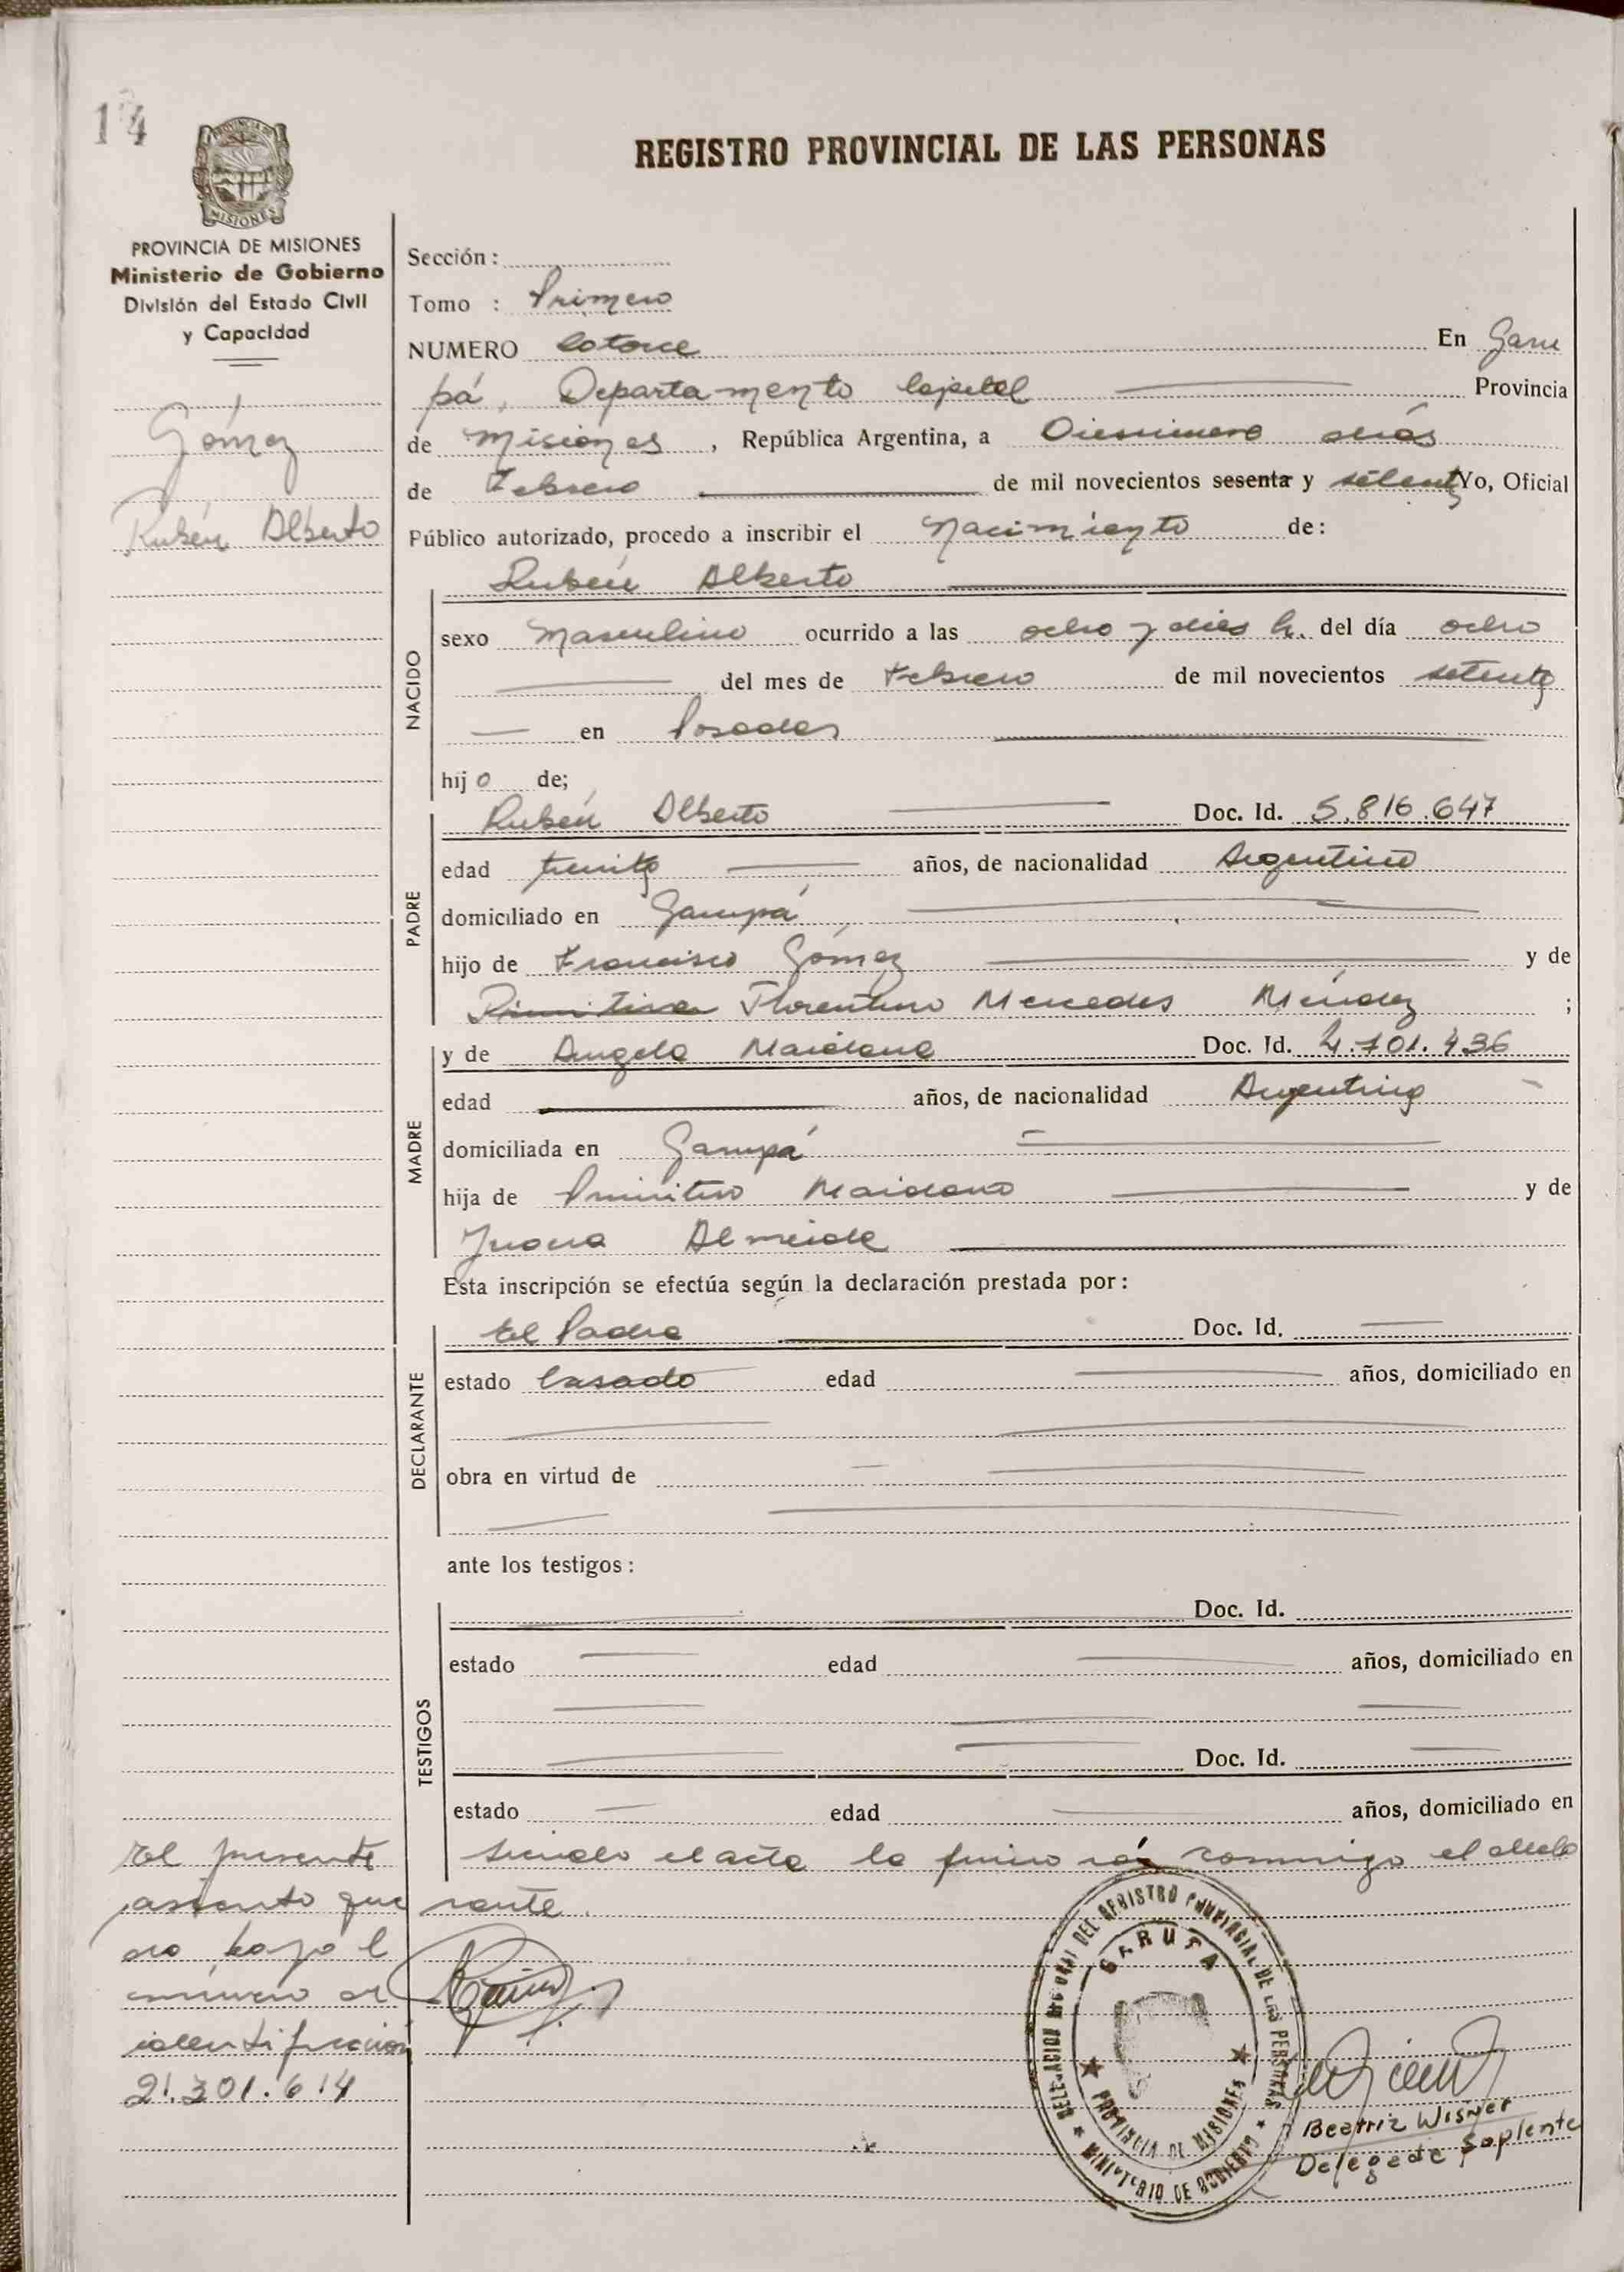 14
PROVINCIA DE MISIONES
MISIONES
REGISTRO PROVINCIAL DE LAS PERSONAS
PROVINCIA DE MISIONES
Ministerio de Gobierno
División del Estado Civil
y Capacidad
Gómez
Rubén Alberto
Sección:
Tomo : Primero
NUMERO Catorce En Garu
pá, Departamento Capital Provincia
de Misiones, República Argentina, a
de Febrero de mil novecientos sesenta y setenta Yo, Oficial
Público autorizado, procedo a inscribir el Nacimiento de:
Rubén Alberto
NACIDO
sexo Masculino ocurrido a las ocho y dies h. del día ocho
del mes de Febrero de mil novecientos setenta
en Posadas
hijo de;
PADRE
Rubén Alberto Doc. Id. 5.816.647
edad treinta años, de nacionalidad Argentino
domiciliado en Garupá
hijo de Francisco Gómez y de
Primitiva Florentino Mercedes Méndez ;
MADRE
y de Angela Maidana Doc. Id. 4.101.436
edad años, de nacionalidad Argentina
domiciliada en Garupá
hija de Primitivo Maidana y de
Juana Almeida
Esta inscripción se efectúa según la declaración prestada por:
DECLARANTE
El Padre Doc. Id.
estado Casado edad años, domiciliado en
obra en virtud de
ante los testigos:
TESTIGOS
Doc. Id.
estado edad años, domiciliado en
Doc. Id.
estado edad años, domiciliado en
el acta la conmigo el decla
rante.
El presente
asiento que
do bajo el
número de
identificación
21.301.614
DEL REGISTRO PROVINCIAL DE LAS PERSONAS
GARUPA
PROVINCIA DE MISIONES
MINISTERIO DE GOBIERNO
Beatriz Wisner
Delegada Suplente